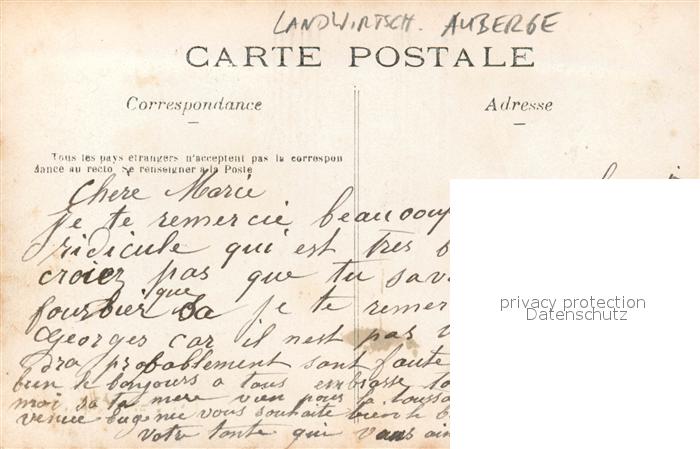 LANDWIRTSCH. AUBERGE
CARTE POSTALE
Correspondance
Adresse
Tous les pays étrangers n'acceptent pas la correspon
dance au recto. Se renseigner à la Poste
Chère Marie
je te remercie beaucoup
ridicule qui est tres
croiez pas que tu sav
fourbier que sa je te remer
Georges car il nest pas
dra probablement sant faute
bien le bonjours a tous embrasse
moi sa ta mere vien pour la toussa
venue Eugenie vous souhaite bien le b
votre tante qui vous aim
privacy protection
Datenschutz